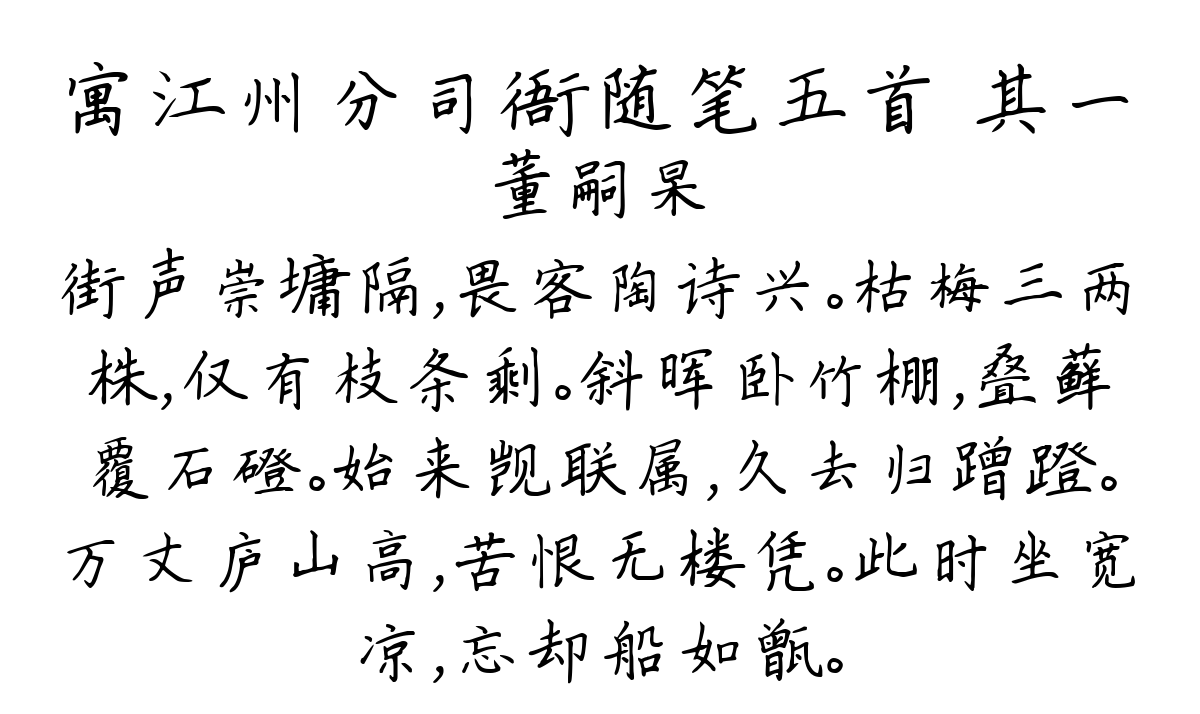 寓江州分司衙随笔五首 其一
董嗣杲
街声崇墉隔,畏客陶诗兴。枯梅三两
株,仅有枝条剩。斜晖卧竹棚,叠藓
覆石磴。始来觊联属,久去归蹭蹬。
万丈庐山高,苦恨无楼凭。此时坐宽
凉,忘却船如甑。